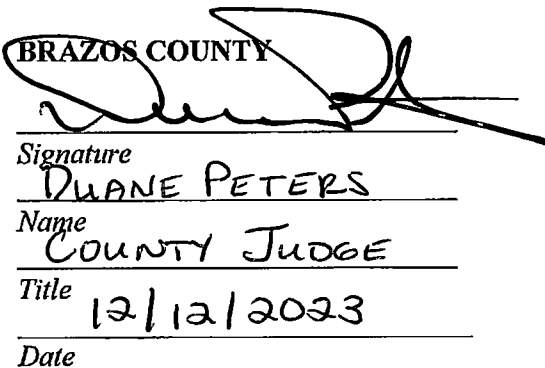 BRAZOS COUNTY
Signature
DUANE PETERS
Name
COUNTY JUDGE
Title
12/12/2023
Date